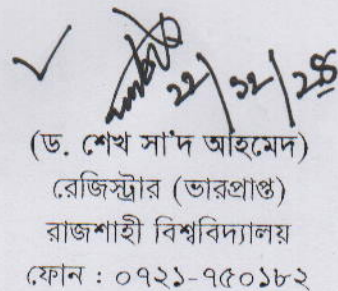 ২২/১২/২৪
(ড. শেখ সা'দ আহমেদ)
রেজিস্ট্রার (ভারপ্রাপ্ত)
রাজশাহী বিশ্ববিদ্যালয়
ফোন : ০৭২১-৭৫০১৮২